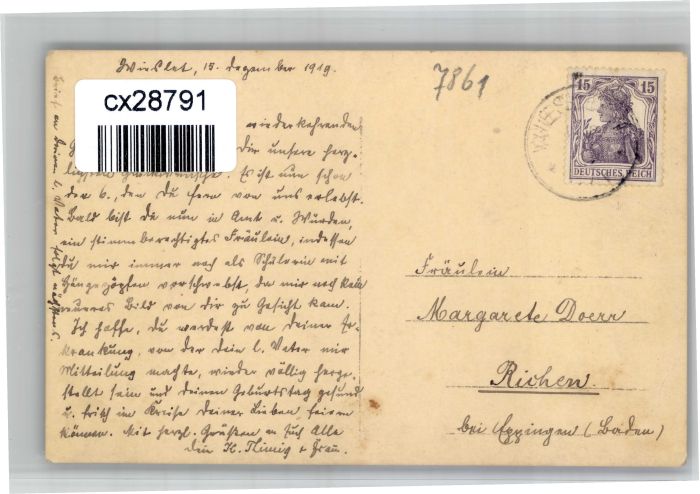 Wieslet, 15. Dezember 1919.
7861
cx28791
15 15
DEUTSCHES REICH
WIES
wiederkehrenden
dir unsere herz-
Es ist nun schon
der 6., den Du fern von uns erlebst.
Bald bist Du nun in Amt u. Würden,
ein stimmberechtigtes Fräulein, indessen
Du mir immer noch als Schülerin mit
Hängezöpfen vorschwebst, da mir noch kein
neueres Bild von dir zu Gesicht kam.
Ich hoffe, Du werdest von deiner Er-
krankung, von der dein l. Vater mir
Mitteilung machte, wieder völlig herge-
stellt sein und deinen Geburtstag gesund
u. frisch im Kreise deiner Lieben feiern
können. Mit herzl. Grüßen an Euch Alle
dein K. Flimig + Frau.
Brief an deinen l. Vater folgt nächstens.
Fräulein
Margarete Doerr
Richen.
bei Eppingen (Baden)